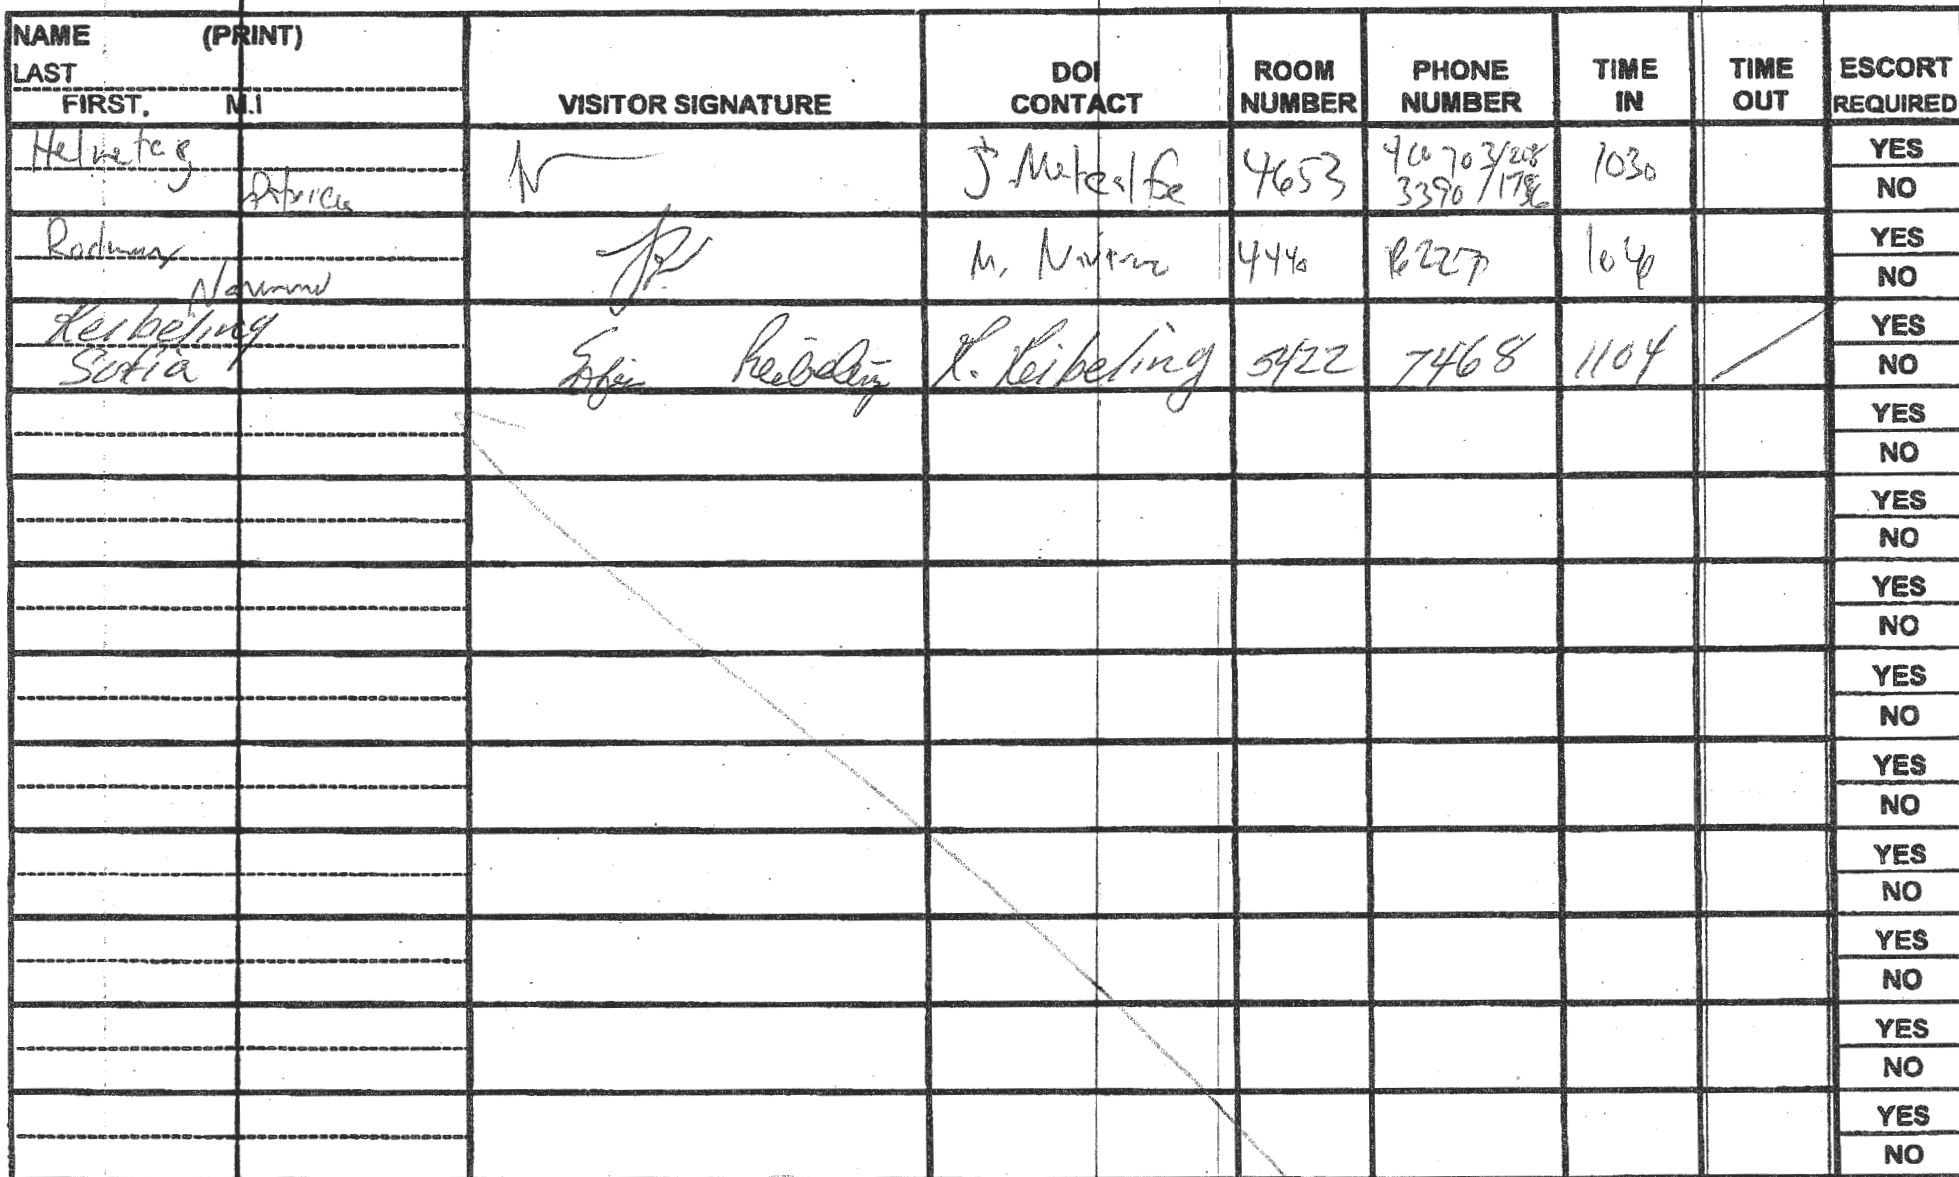 NAME (PRINT)
LAST
FIRST, M.I
VISITOR SIGNATURE
DOI CONTACT
ROOM NUMBER
PHONE NUMBER
TIME IN
TIME OUT
ESCORT REQUIRED
Helvetag
Patricia
J. Metcalfe
4653
1030
YES
NO
Rodman
M.
4440
YES
NO
Keibeling
Sofia
Sofia Keibeling
K. Keibeling
5422
7468
1104
YES
NO
YES
NO
YES
NO
YES
NO
YES
NO
YES
NO
YES
NO
YES
NO
YES
NO
YES
NO